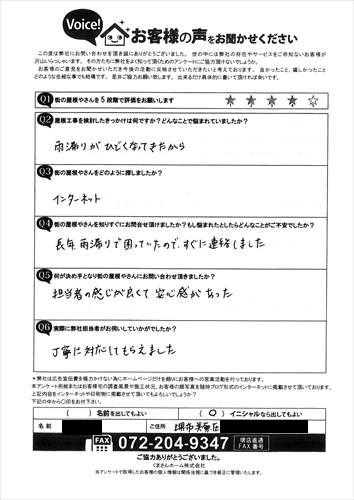 Voice!
お客様の声をお聞かせください
この度は弊社にお問い合わせを頂き誠にありがとうございました。世の中には弊社の存在やサービスをご存知ないお客様が
沢山いらっしゃいます。その方たちに弊社をよく知って頂くためのアンケートにご協力頂けないでしょうか。
お客様のご意見をお聞かせいただき今後の活動に反映させていただきたいと考えております。良かったこと、嬉しかったこと
どのような些細な事でも結構です。是非ご協力お願いします。出来るだけ具体的に書いて頂ければ幸いです。
Q1 街の屋根やさんを5段階で評価をお願いします ★ ★ ★ ★ ☆
Q2 屋根工事を検討したきっかけは何ですか?どんなことで悩まれていましたか?
雨漏りがひどくなってきたから
Q3 街の屋根やさんをどのように探しましたか?
インターネット
Q4 街の屋根やさんを知りすぐにお問合せ頂けましたか?もし悩まれたとしたらどんなことがご不安でしたか?
長年雨漏りで困っていたので、すぐに連絡しました
Q5 何が決め手となり街の屋根やさんにお問い合わせ頂けましたか?
担当者の感じが良くて安心感があった
Q6 実際に弊社担当がお伺いしていかがでしたか?
丁寧に対応してもらえました
※弊社は広告宣伝費を極力かけない為にホームページだけを頼りにお客様への営業活動を行っております。
本アンケート用紙またはお客様宅の調査風景や施工状況、お客様の顔写真を随時ブログ形式のインターネットに掲載させて頂いております。
上記内容をインターネットや印刷物に掲載させて頂いてもよろしいでしょうか?
下記の中から○印をお付け下さい。
( )名前を出してもよい ( ○ )イニシャルなら出してもよい
名前 ご住所 堺市美原区
FAX 072-204-9347 堺店直通 FAX番号
ご協力ありがとうございました。
くまさんホーム株式会社
※アンケートで取得したお客様の個人情報は関係法規に基づき厳正に管理いたします。